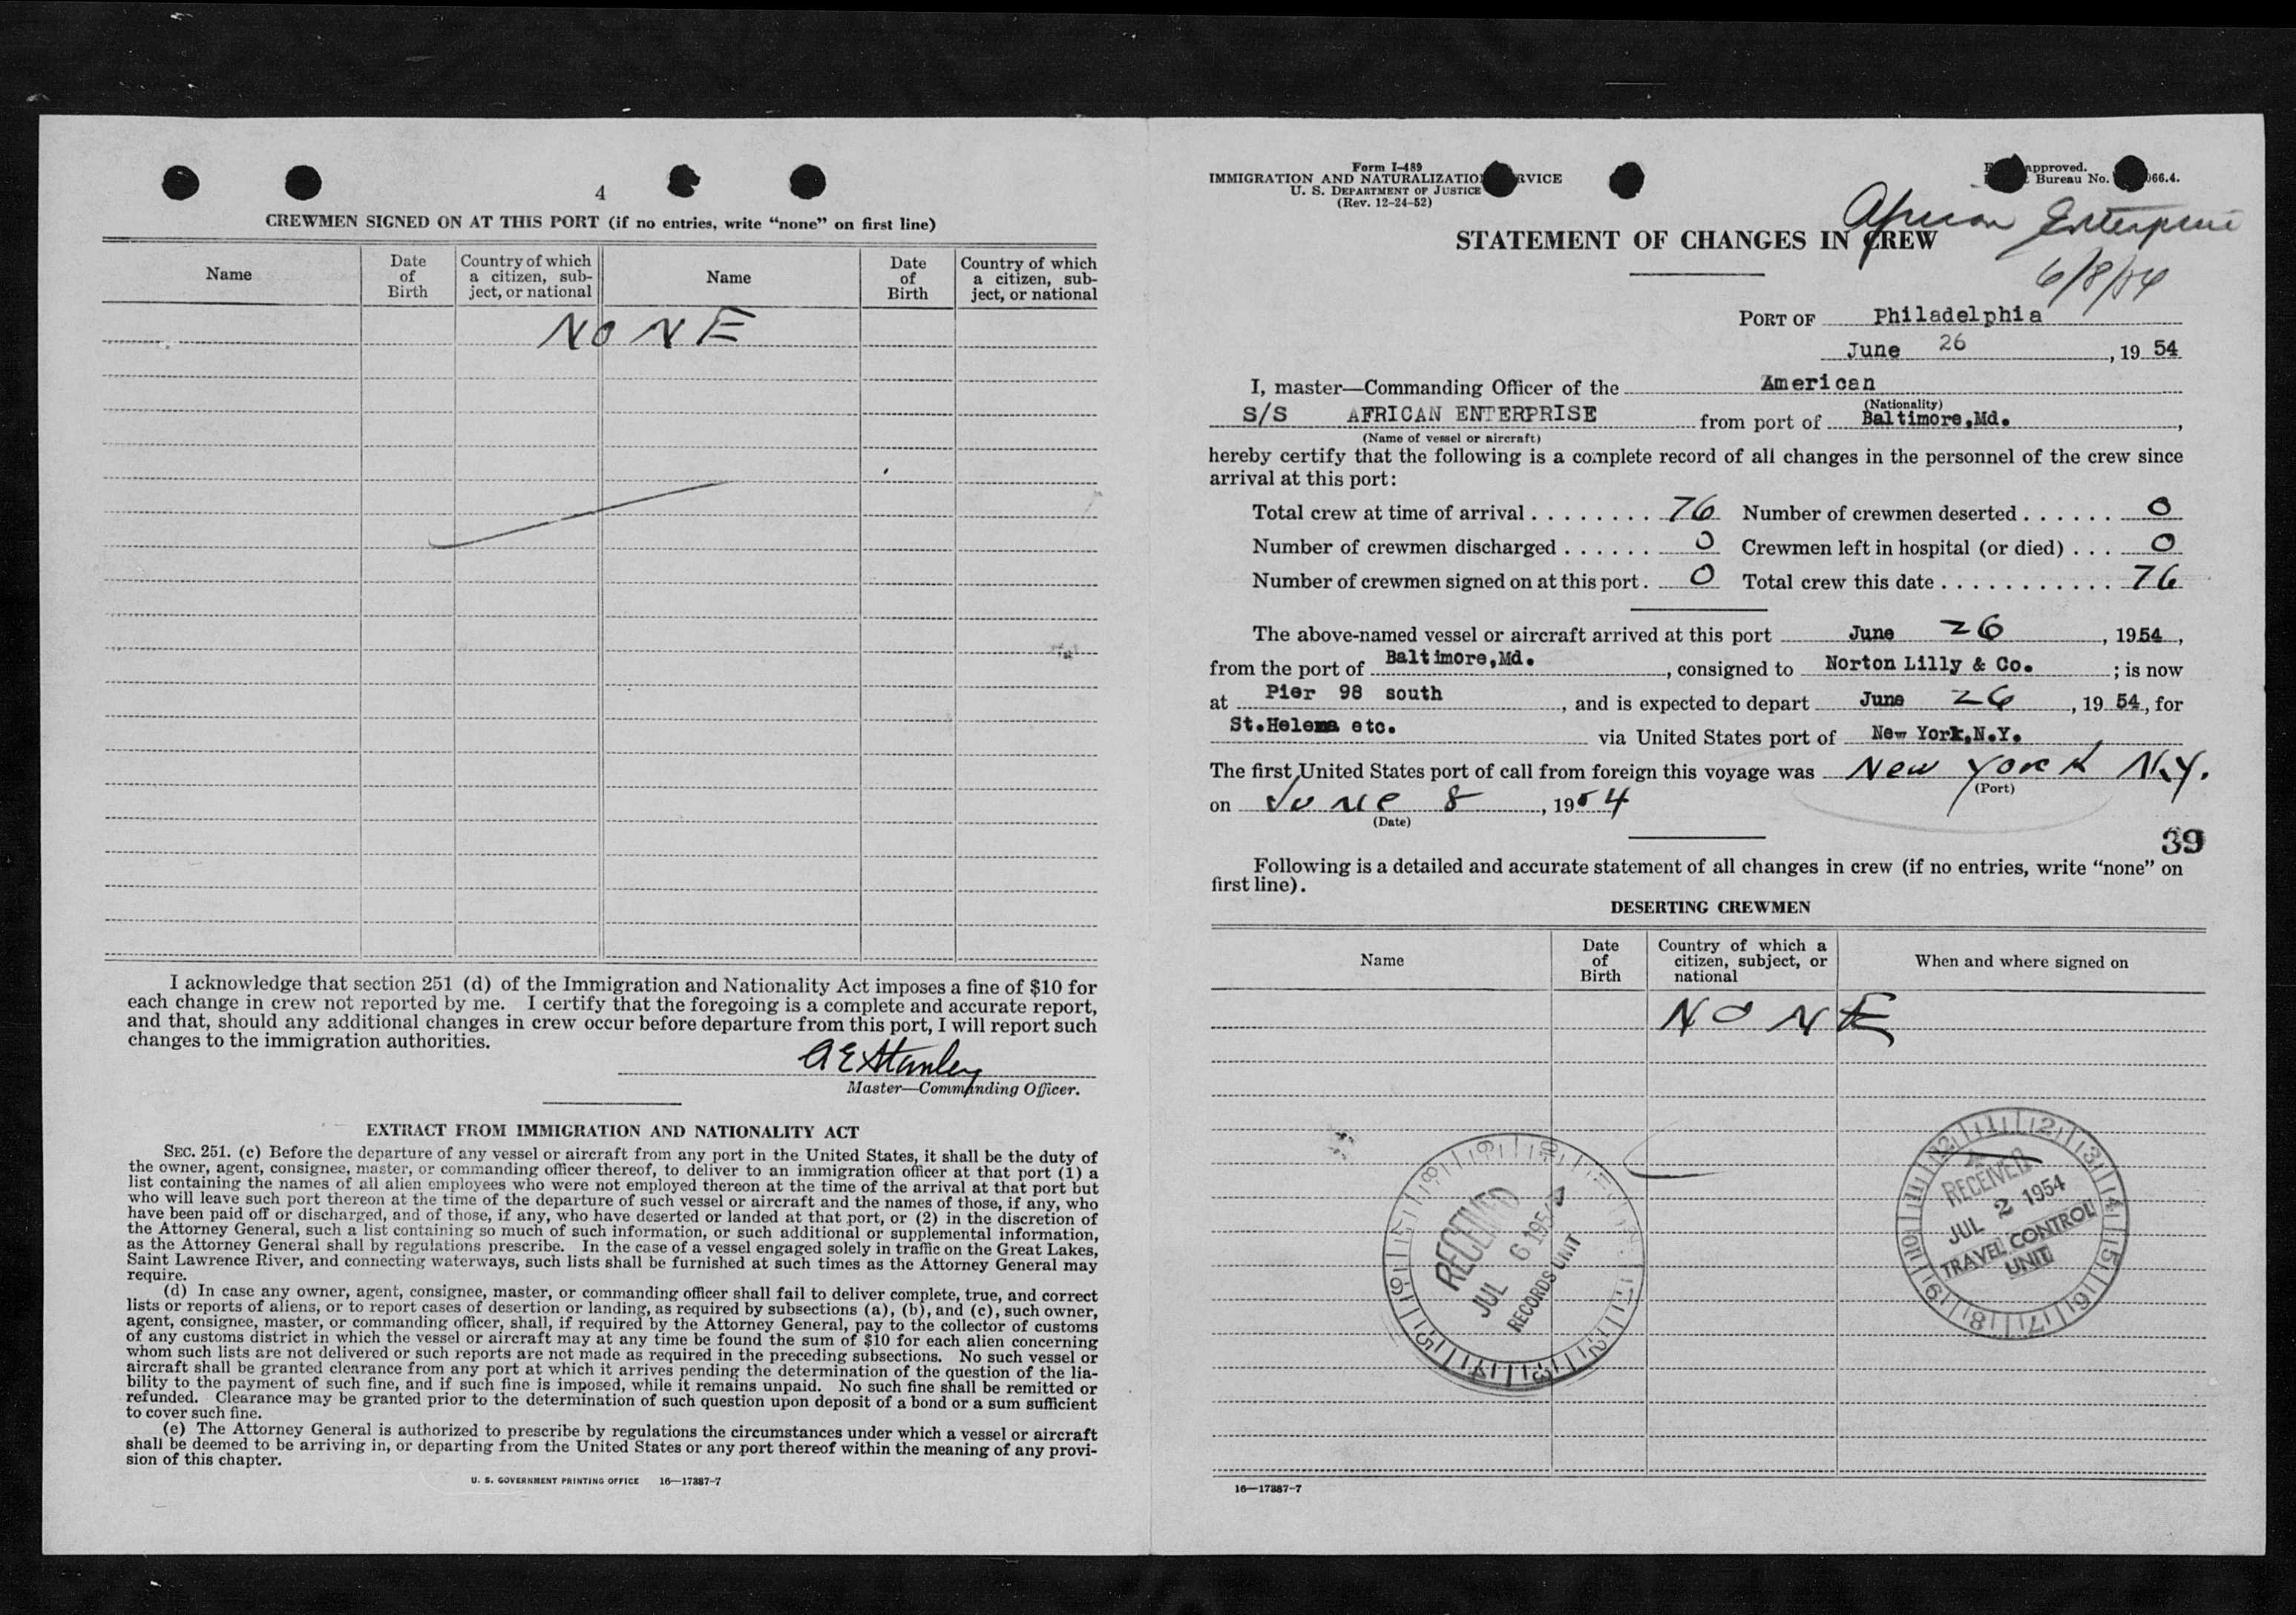 4
CREWMEN SIGNED ON AT THIS PORT (if no entries, write “none” on first line)
Name
Date of Birth
Country of which a citizen, subject, or national
Name
Date of Birth
Country of which a citizen, subject, or national
NONE
I acknowledge that section 251 (d) of the Immigration and Nationality Act imposes a fine of $10 for
each change in crew not reported by me. I certify that the foregoing is a complete and accurate report,
and that, should any additional changes in crew occur before departure from this port, I will report such
changes to the immigration authorities.
A E Stanley
Master—Commanding Officer.
EXTRACT FROM IMMIGRATION AND NATIONALITY ACT
SEC. 251. (c) Before the departure of any vessel or aircraft from any port in the United States, it shall be the duty of
the owner, agent, consignee, master, or commanding officer thereof, to deliver to an immigration officer at that port (1) a
list containing the names of all alien employees who were not employed thereon at the time of the arrival at that port but
who will leave such port thereon at the time of the departure of such vessel or aircraft and the names of those, if any, who
have been paid off or discharged, and of those, if any, who have deserted or landed at that port, or (2) in the discretion of
the Attorney General, such a list containing so much of such information, or such additional or supplemental information,
as the Attorney General shall by regulations prescribe. In the case of a vessel engaged solely in traffic on the Great Lakes,
Saint Lawrence River, and connecting waterways, such lists shall be furnished at such times as the Attorney General may
require.
(d) In case any owner, agent, consignee, master, or commanding officer shall fail to deliver complete, true, and correct
lists or reports of aliens, or to report cases of desertion or landing, as required by subsections (a), (b), and (c), such owner,
agent, consignee, master, or commanding officer, shall, if required by the Attorney General, pay to the collector of customs
of any customs district in which the vessel or aircraft may at any time be found the sum of $10 for each alien concerning
whom such lists are not delivered or such reports are not made as required in the preceding subsections. No such vessel or
aircraft shall be granted clearance from any port at which it arrives pending the determination of the question of the lia-
bility to the payment of such fine, and if such fine is imposed, while it remains unpaid. No such fine shall be remitted or
refunded. Clearance may be granted prior to the determination of such question upon deposit of a bond or a sum sufficient
to cover such fine.
(e) The Attorney General is authorized to prescribe by regulations the circumstances under which a vessel or aircraft
shall be deemed to be arriving in, or departing from the United States or any port thereof within the meaning of any provi-
sion of this chapter.
U. S. GOVERNMENT PRINTING OFFICE 16—17387-7
Form I-489
IMMIGRATION AND NATURALIZATIO RVICE
U. S. DEPARTMENT OF JUSTICE
(Rev. 12-24-52)
approved.
Bureau No. 066.4.
African Enterprise
6/8/54
STATEMENT OF CHANGES IN CREW
PORT OF Philadelphia
June 26, 1954
I, master—Commanding Officer of the American
(Nationality)
S/S AFRICAN ENTERPRISE from port of Baltimore,Md.,
(Name of vessel or aircraft)
hereby certify that the following is a complete record of all changes in the personnel of the crew since
arrival at this port:
Total crew at time of arrival . . . . . . . . 76 Number of crewmen deserted . . . . . . 0
Number of crewmen discharged . . . . . . 0 Crewmen left in hospital (or died) . . . 0
Number of crewmen signed on at this port . 0 Total crew this date . . . . . . . . . . . 76
The above-named vessel or aircraft arrived at this port June 26, 1954,
from the port of Baltimore,Md., consigned to Norton Lilly & Co.; is now
at Pier 98 south, and is expected to depart June 26, 1954, for
St.Helena etc. via United States port of New York,N.Y.
The first United States port of call from foreign this voyage was New York N.Y.
(Port)
on June 8, 1954
(Date)
39
Following is a detailed and accurate statement of all changes in crew (if no entries, write “none” on
first line).
DESERTING CREWMEN
Name
Date of Birth
Country of which a citizen, subject, or national
When and where signed on
NONE
RECEIVED
JUL 6 1954
RECORDS UNIT
RECEIVED
JUL 2 1954
TRAVEL CONTROL
UNIT
16—17387-7